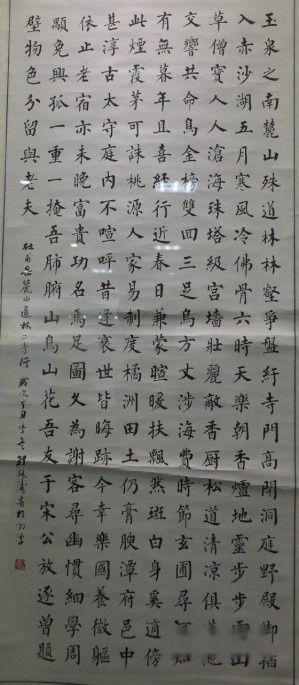 玉泉之南麓山殊道林林壑爭盤紆寺門高開洞庭野殿脚插
入赤沙湖五月寒風冷佛骨六時天樂朝香爐地靈步步雪山
草僧寶人人滄海珠塔級宮墻壯麗敵香厨松道清凉俱蓮
交響共命鳥金榜雙回三足烏方丈涉海費時節玄圃尋河知
有無暮年且喜經行近春日兼蒙暄暖扶飄然斑白身奚適傍
此煙霞茅可誅桃源人家易制度橘洲田土仍膏腴潭府邑中
甚淳古太守庭內不喧呼昔逢衰世皆晦跡今幸樂國養微軀
依止老宿亦未晚富貴功名焉足圖久為謝客尋幽慣細學周
顒免興孤一重一掩吾肺腑山鳥山花吾友于宋公放逐曾題
壁物色分留與老夫
杜甫岳麓山道林二寺行 歲次丁丑